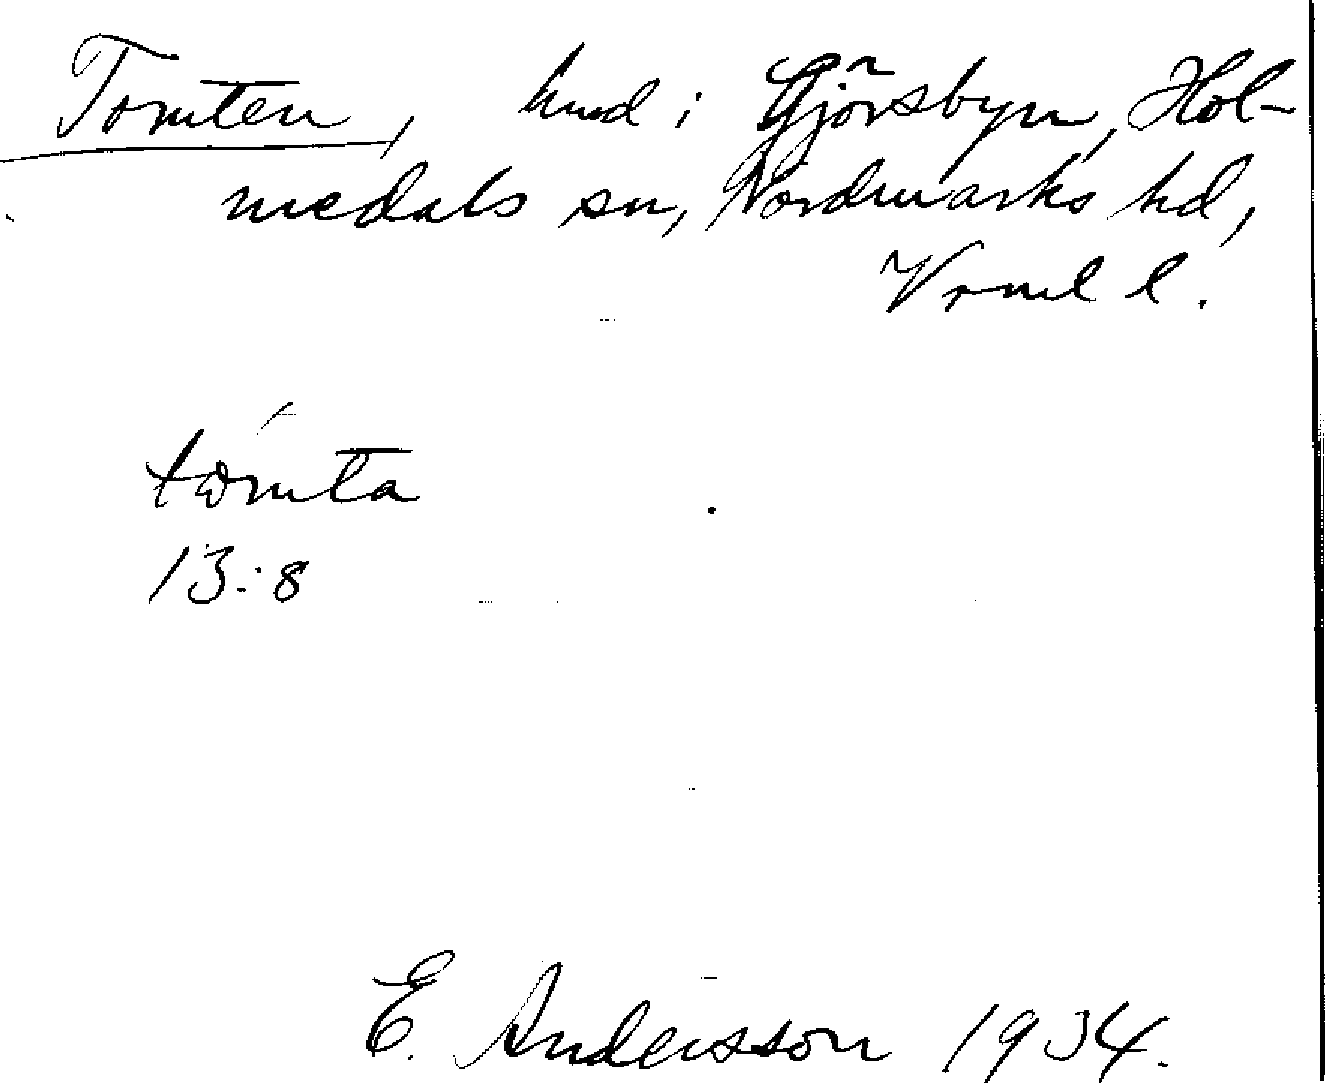 Tomten, hmd i Gjörsbyn, Hol-
medals sn, Nordmarks hd,
Vrml l.
tômta
13:8
E. Andersson 1934.